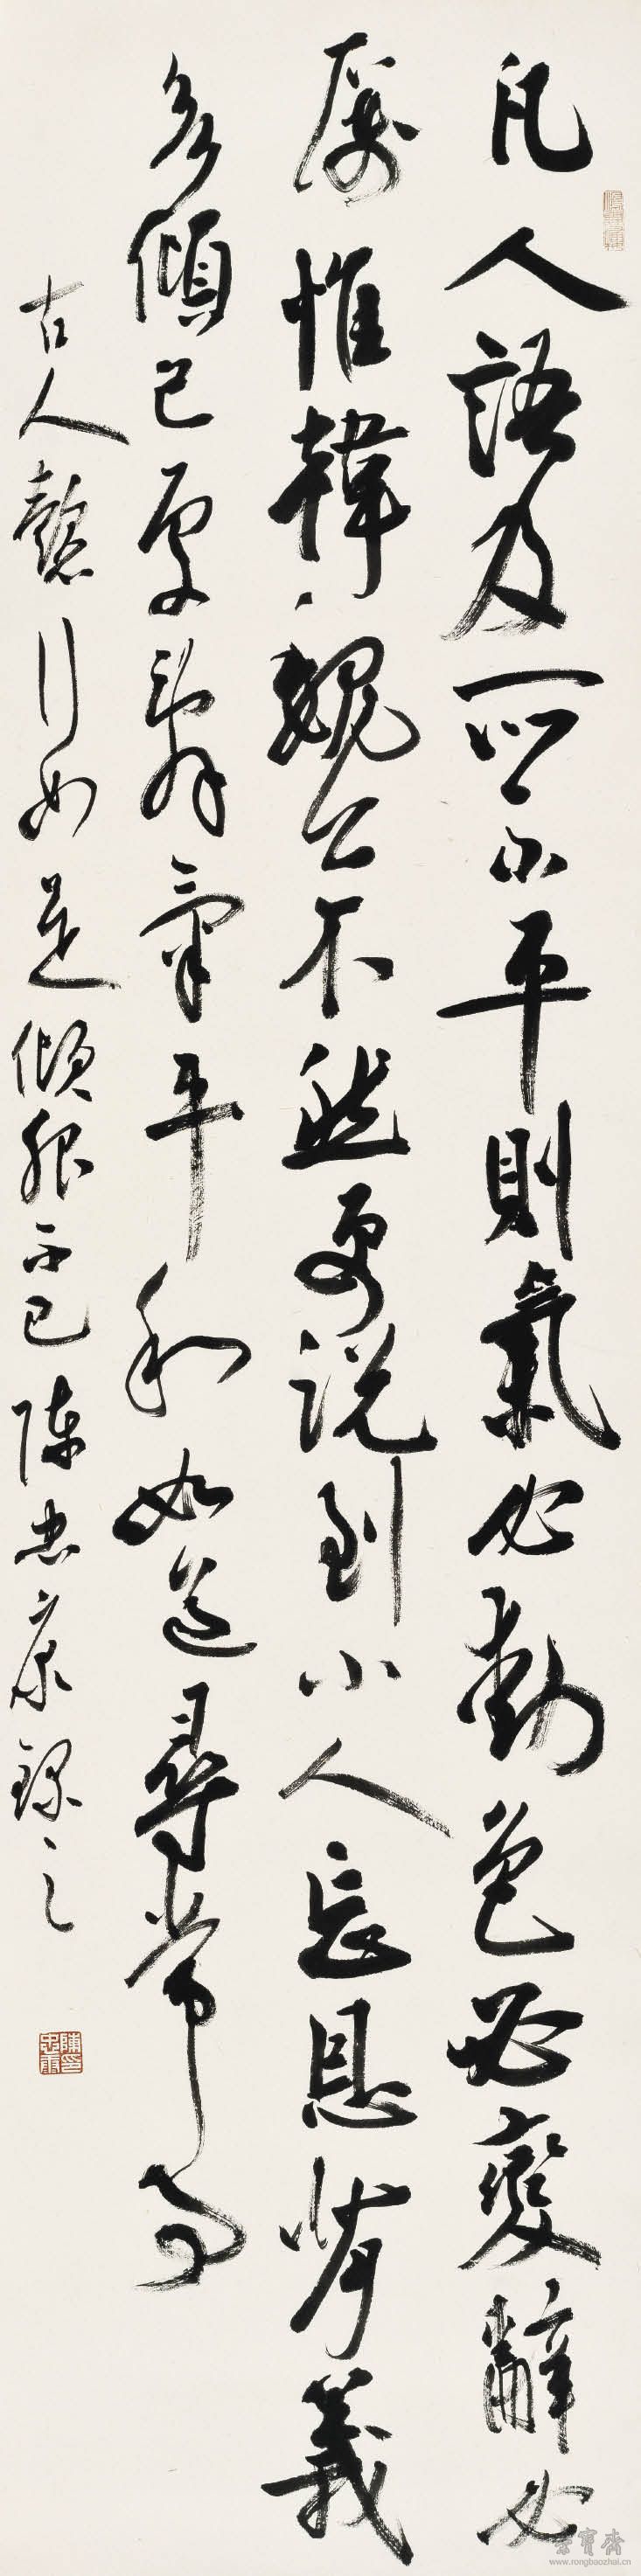 凡人語及所不平則氣必動色必變辭必
厲惟韓魏公不然更說到小人忘恩背義
欲傾己處辭氣平和如道尋常事
古人懿行如是傾服不已陳忠康錄之
陳忠康印
榮寶齋
www.rongbaozhai.cn